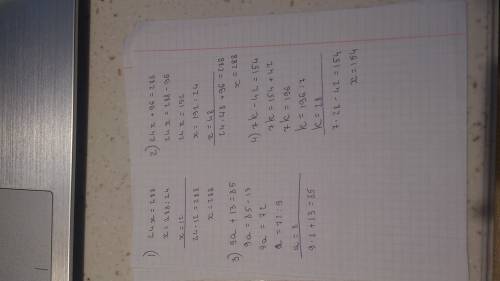 1) 24x = 288
x = 288:24
x = 12
24·12 = 288
x = 288
2) 24x + 96 = 288
24x = 288 - 96
24x = 192
x = 192:24
x = 48
24·48 + 96 = 288
x = 288
3) 9a + 13 = 85
9a = 85 - 13
9a = 72
a = 72:9
a = 8
9·8 + 13 = 85
4) 7k - 42 = 154
7k = 154 + 42
7k = 196
k = 196:7
k = 28
7·28 - 42 = 154
x = 154